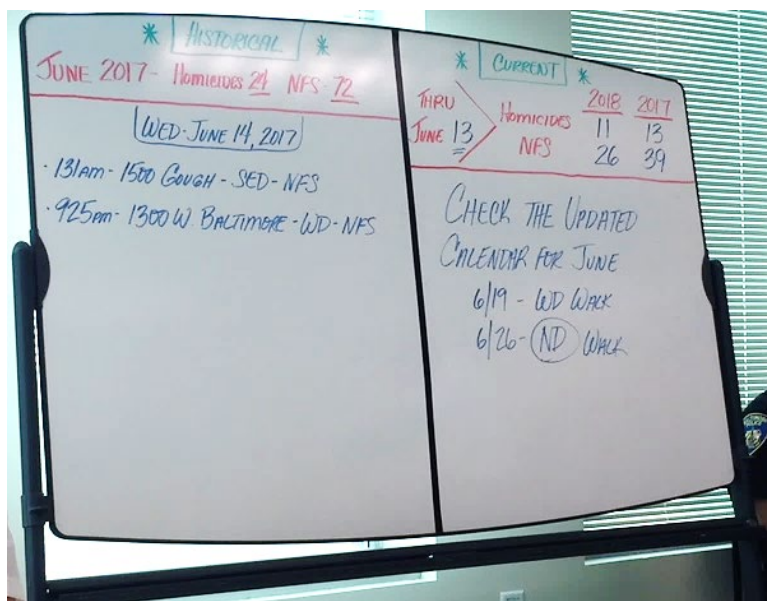 * HISTORICAL *
JUNE 2017- HOMICIDES 24 NFS 72
WED-JUNE 14, 2017
· 131AM- 1500 GOUGH - SED- NFS
· 925AM- 1300 W. BALTIMORE - WD- NFS
* CURRENT *
2018 2017
THRU JUNE 13 HOMICIDES 11 13
NFS 26 39
CHECK THE UPDATED
CALENDAR FOR JUNE
6/19 - WD WALK
6/26- ND WALK